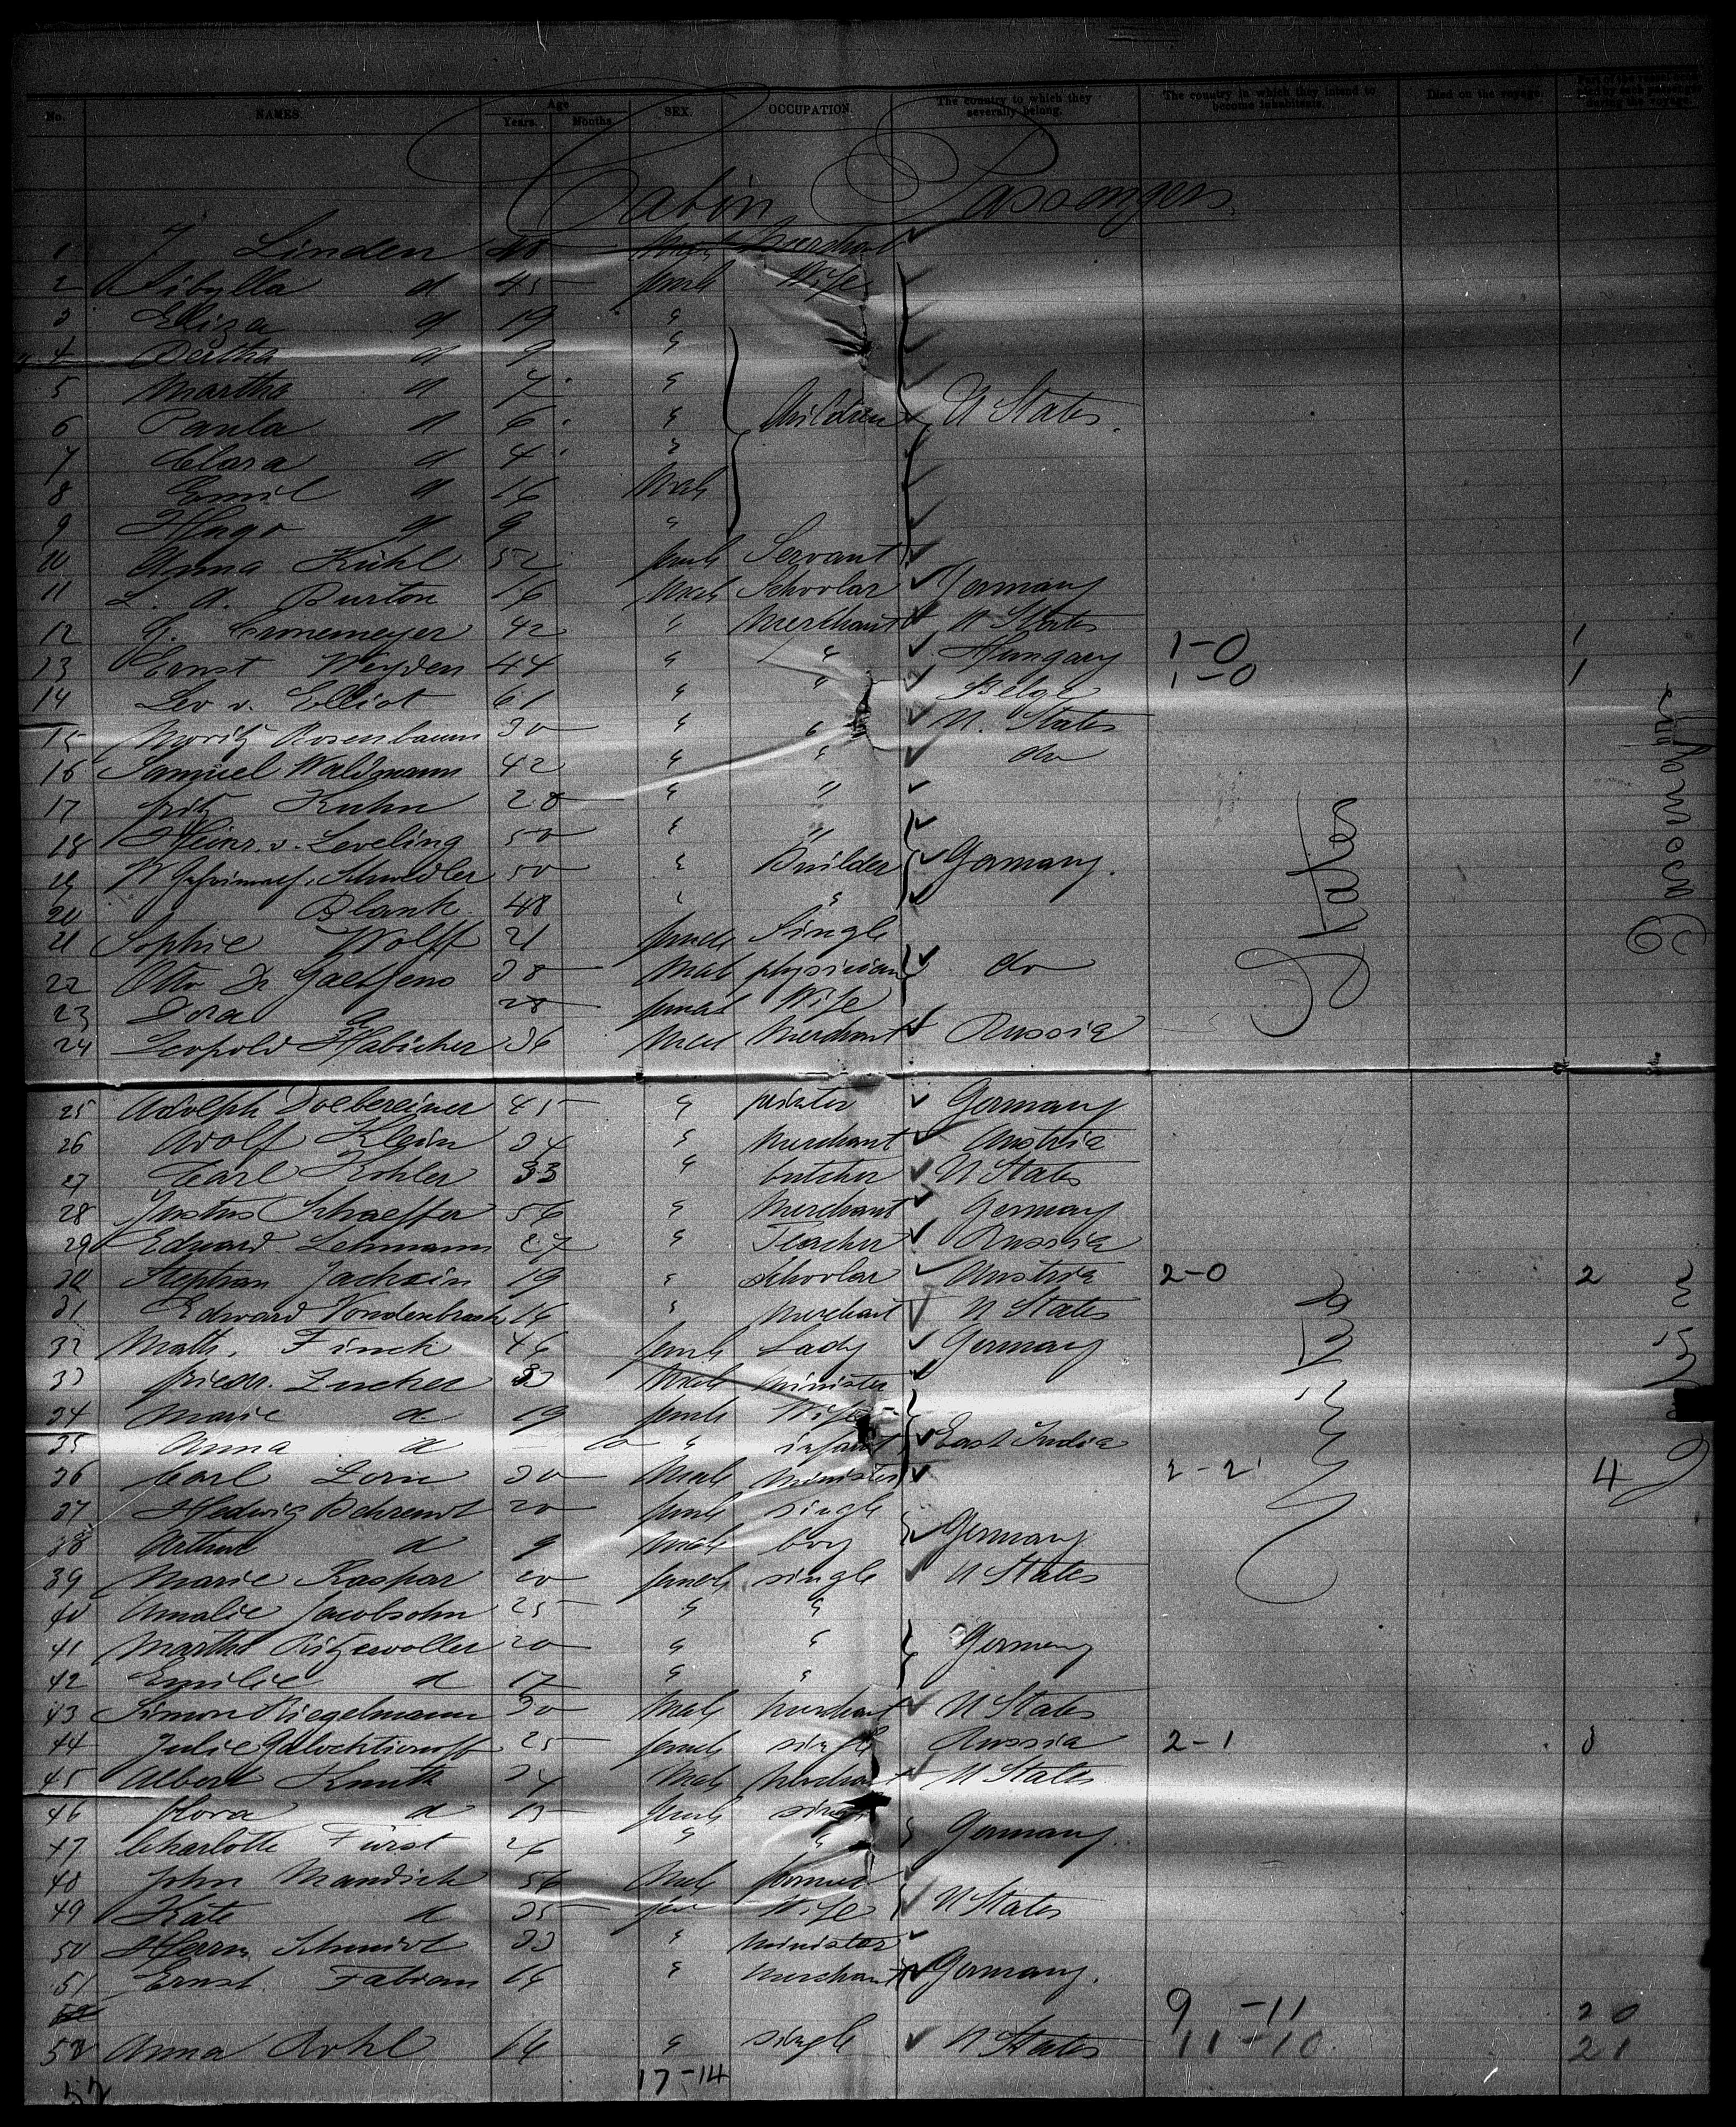 No. NAMES. Age Years. Months. SEX. OCCUPATION. The country to which they severally belong. The country in which they intend to become inhabitants. Died on the voyage. Part of the vessel occupied by each passenger during the voyage.
Cabin Passengers
1 J. Linden 48 Male Merchant
2 Sibylla d 45 female Wife
3 Eliza d 19 "
4 Bertha d 9 "
5 Martha d 7 "
6 Paula d 6 " Children U States.
7 Clara d 4 "
8 Emil d 16 Male
9 Hugo d 9 "
10 Anna Kühl 52 female Servant
11 L. A. Burton 16 Male Schoolar Germany
12 G. Cronemeyer 42 " Merchant U States
13 Ernst Weyden 44 " " Hungary 1-0 1
14 Leo v. Elliot 61 " " Belge 1-0 1
15 Moritz Rosenbaum 30 " " U. States
16 Samuel Waldmann 42 " " do
17 Fritz Kuhn 28 " "
18 Heinr. v. Leveling 50 " "
19 Schmedler 50 " Builder Germany.
20 Blank 48 " "
21 Sophie Wolff 21 female Single
22 Otto Dr Gaetjens 38 Male physician do
23 Dora d 28 female Wife
24 Leopold Habicher 36 Male Merchant Russia
25 Adolph Doebereiner 45 " Germany
26 Adolf Klein 34 " Merchant Austria
27 Carl Kohler 33 " butcher U States
28 Justus Schaeffer 56 " Merchant Germany
29 Edward Lehmann 27 " Teacher Russia
30 Stephan Jackson 19 " Schoolar Austria 2-0 2
31 Edward Vondenbusch 16 " Merchant U States
32 Math. Finck 46 female Lady Germany
33 Friedr. Zucker 32 Male Minister
34 Marie d 19 female Wife
35 Anna d " infant East India
36 Carl Zorn 30 Male Minister 2-2 4
37 Hedwig Behrendt 20 female single
38 Arthur d 9 Male boy Germany
39 Marie Kaspar 20 female single U States
40 Amalie Jacobsohn 25 " "
41 Martha Ritzewoller 20 " " Germany
42 Emilie d 17 " "
43 Simon Riegelmann 30 Male Merchant U States
44 Julie 25 female single Russia 2-1 3
45 Albert Knuth 24 Male Merchant U States
46 Flora d 15 female single
47 Charlotte Fürst 26 " " Germany.
48 John Mandick 56 Male farmer
49 Kate d 35 fem Wife U States
50 Herm. Schmidt 33 " Minister
51 Ernst Fabian 16 " Merchant Germany.
9-11 20
52 Anna Rohl 16 " single U States 11-10 21
52 17-14
States